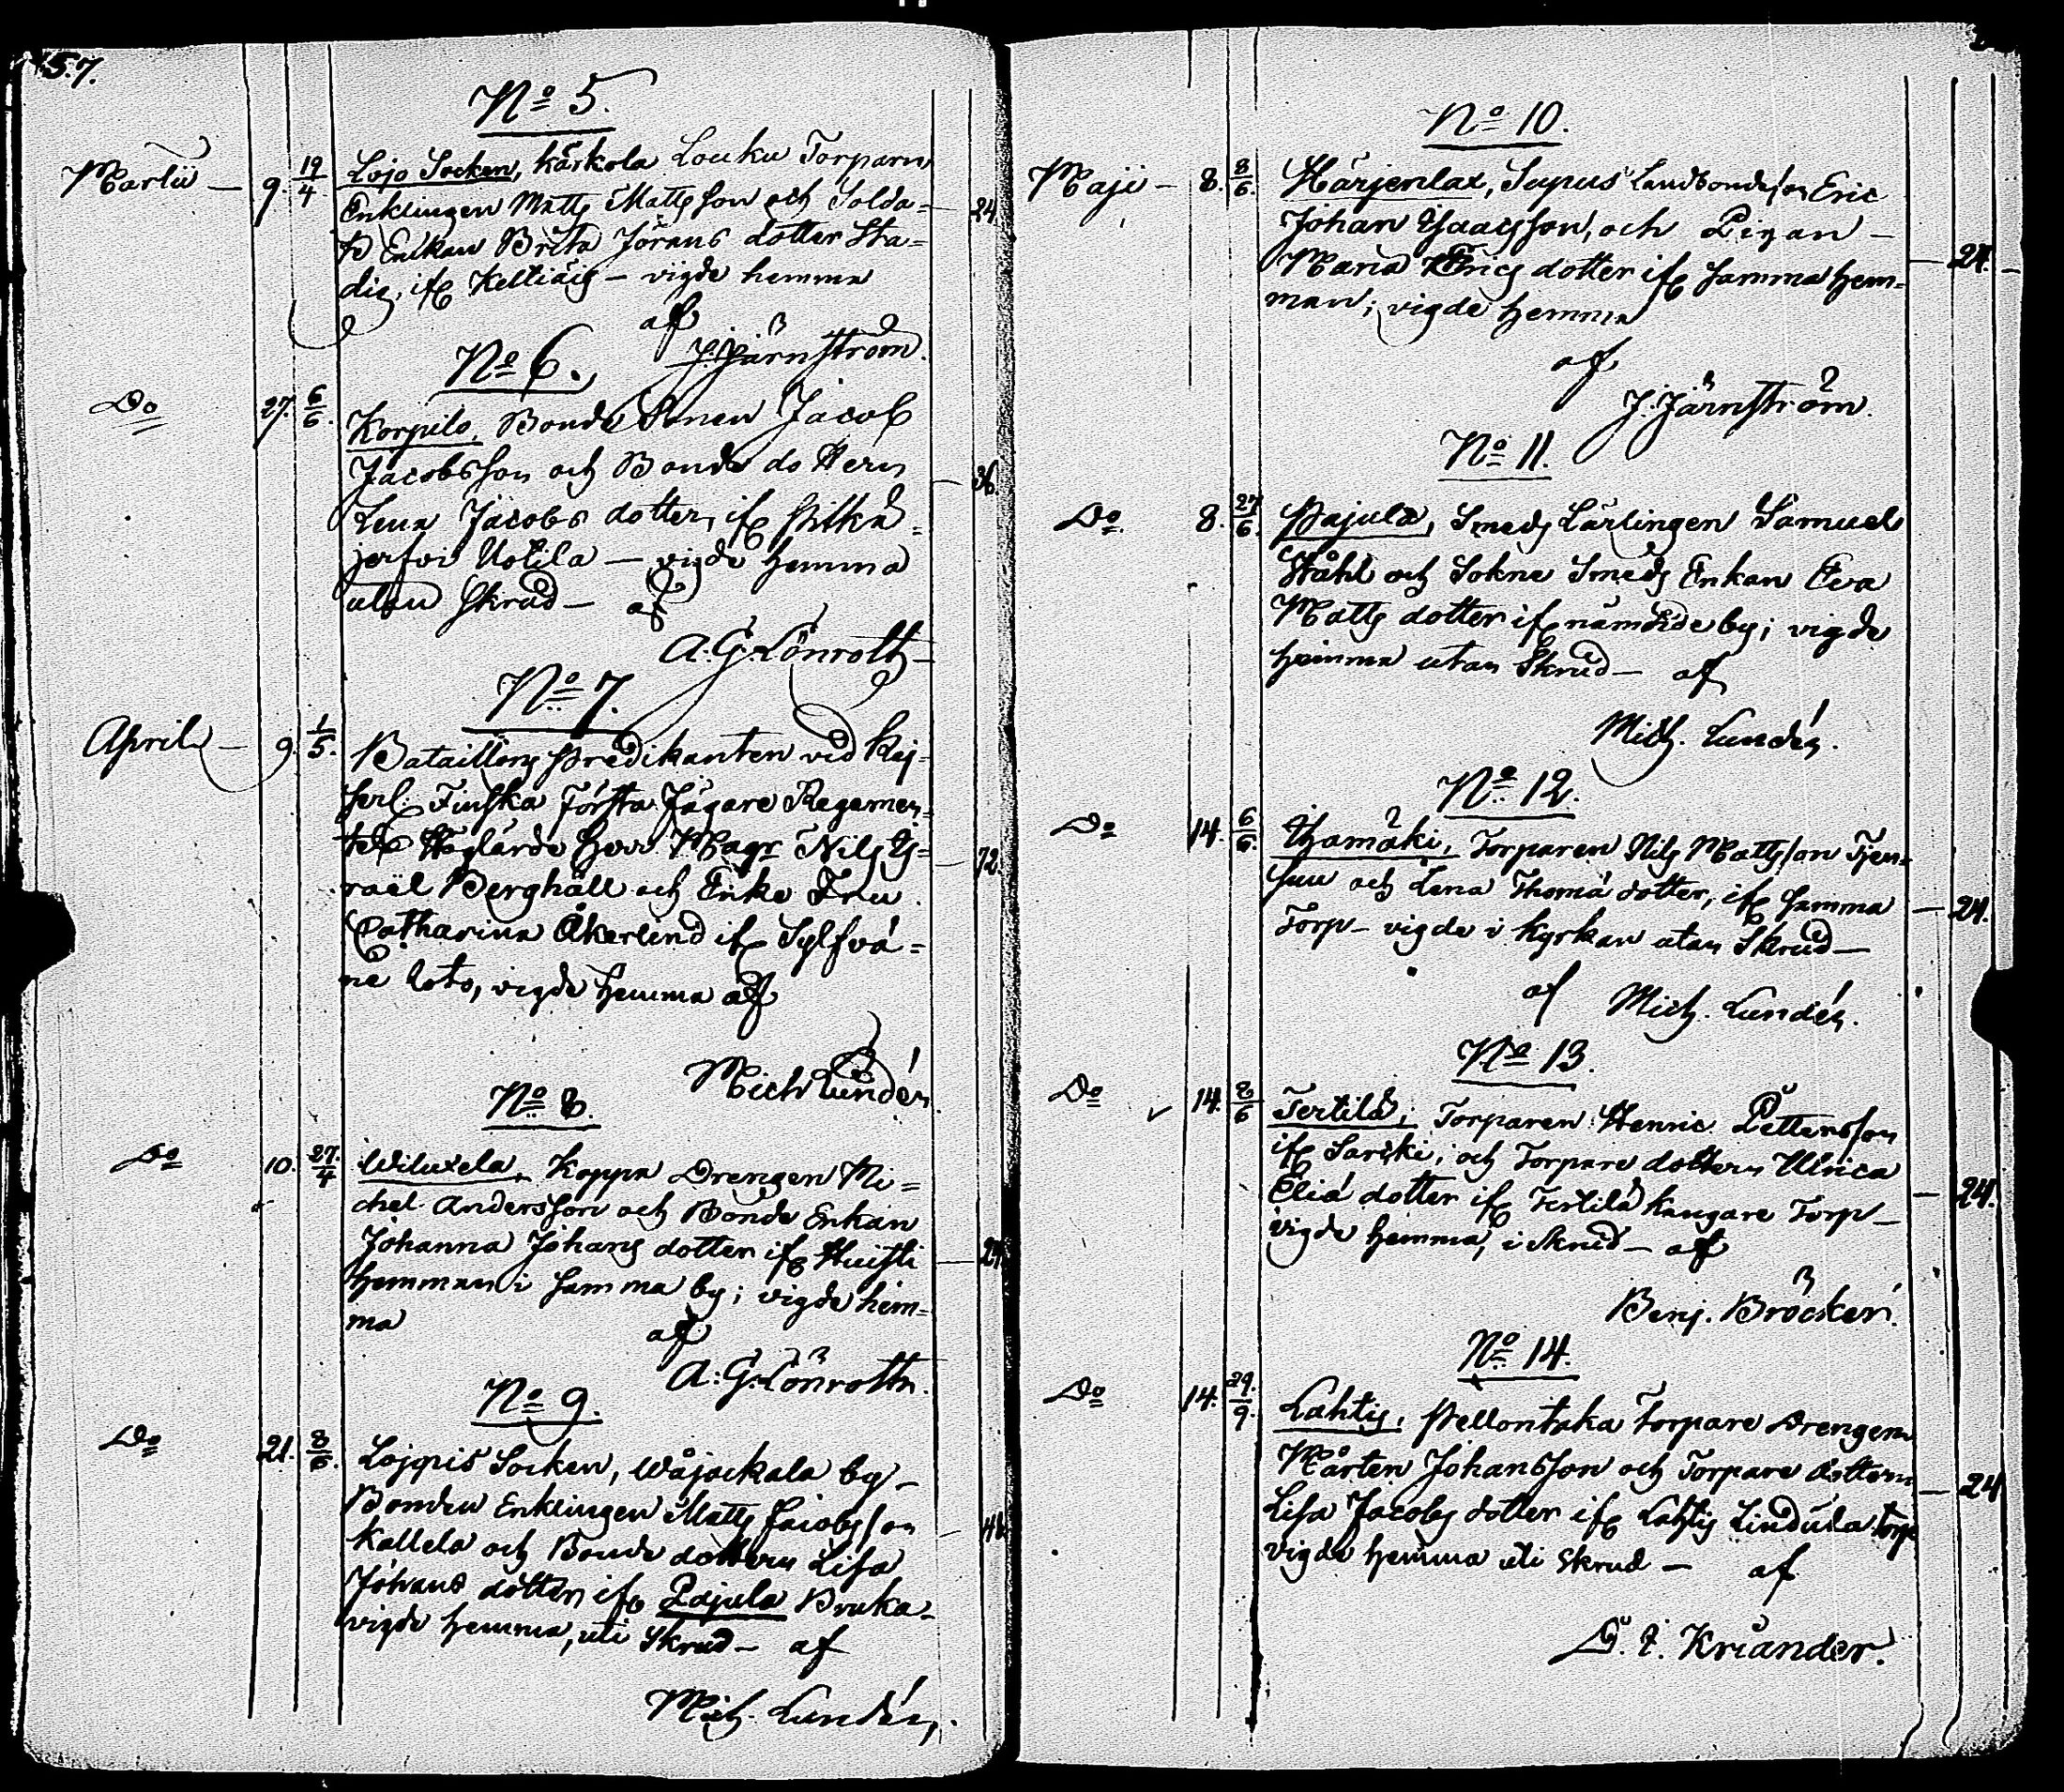 57.
No 5.
Martii — 9. 19/4 Lojo Socken, Kärkola Louku Torparn
Enklingen Matts Mattsson och Solda=
te Enkan Brita Jörans dotter Sta=
dig, ifr — vigde hemma
24.
af
J. Järnström.
No 6.
Do 27. 6/6. Korpilo, Bonde Sonen Jacob
Jacobsson och Bonde do tern
36.
Lena Jacobs dotter, ifr Pitkä=
jerfvi Uotila — vigde hemma
utan Skrud — af
A: G: Lönroth
No 7.
April — 9. 1/5. Bataillons Predikanten vid Kej=
serl. Finska Första Jägare Regemen=
tet Höglärde Herr Magr Nils Is=
72.
raël Berghäll och Enke Fru
Catharina Åkerlund ifr Sylfvä=
ne boto, vigde hemma af
Mich Lundén.
No 8.
Do 10. 27./4 Wiluxela, Koppa Drengen Mi=
chel Andersson och Bonde Enkan
Johanna Johans dotter ifr Huisti
24
hemman i samma by; vigde hem=
ma af
A: G: Lönroth.
No 9.
Do 21. 8/6. Lojois Socken, Wåjackala by —
Bonden Enklingen Matts Jacobsson
48
Kallela och Bonde dottern Lisa
Johans dotter ifr Pajula Bruka —
vigde hemma, uti Skrud — af
Mich. Lundén.
No 10.
Maji — 8. 8/6. Härjenlax, Supus Landbondeson Eric
Johan Isaacsson, och Pigan —
24.
Maria Erics dotter ifr samma hem=
man; vigde hemma
af
J. Järnström.
No 11.
Do. 8. 27/6. Pajula, Smeds Lärlingen Samuel
Ståhl och Sokne Smeds Enkan Eva
Matts dotter ifr nämde by; vigde
hemma utan Skrud — af
Mich. Lundén.
No 12.
Do 14. 6/6. Ihamäki, Torparen Nils Mattsson Tjen=
suu och Lena Thoma dotter, ifr samma
24.
Torp — vigde i Kyrkan utan Skrud —
af Mich. Lundén.
No 13.
Do 14. 8/6 Tertilä, Torparen Henric Pettersson
ifr Särki, och Torpare dottern Ulrica
24.
Elia dotter ifr Tertilä Kangare Torp —
vigde hemma, i Skrud — af
Benj. Bröcker.
No 14.
Do 14. 29./9. Lahtis, Pellontaka Torpare Drengen
Mårten Johansson och Torpare dottern
24
Lisa Jacobs dotter ifr Lahtis Lindula torp
vigde hemma uti Skrud — af
G. J. Kriander.